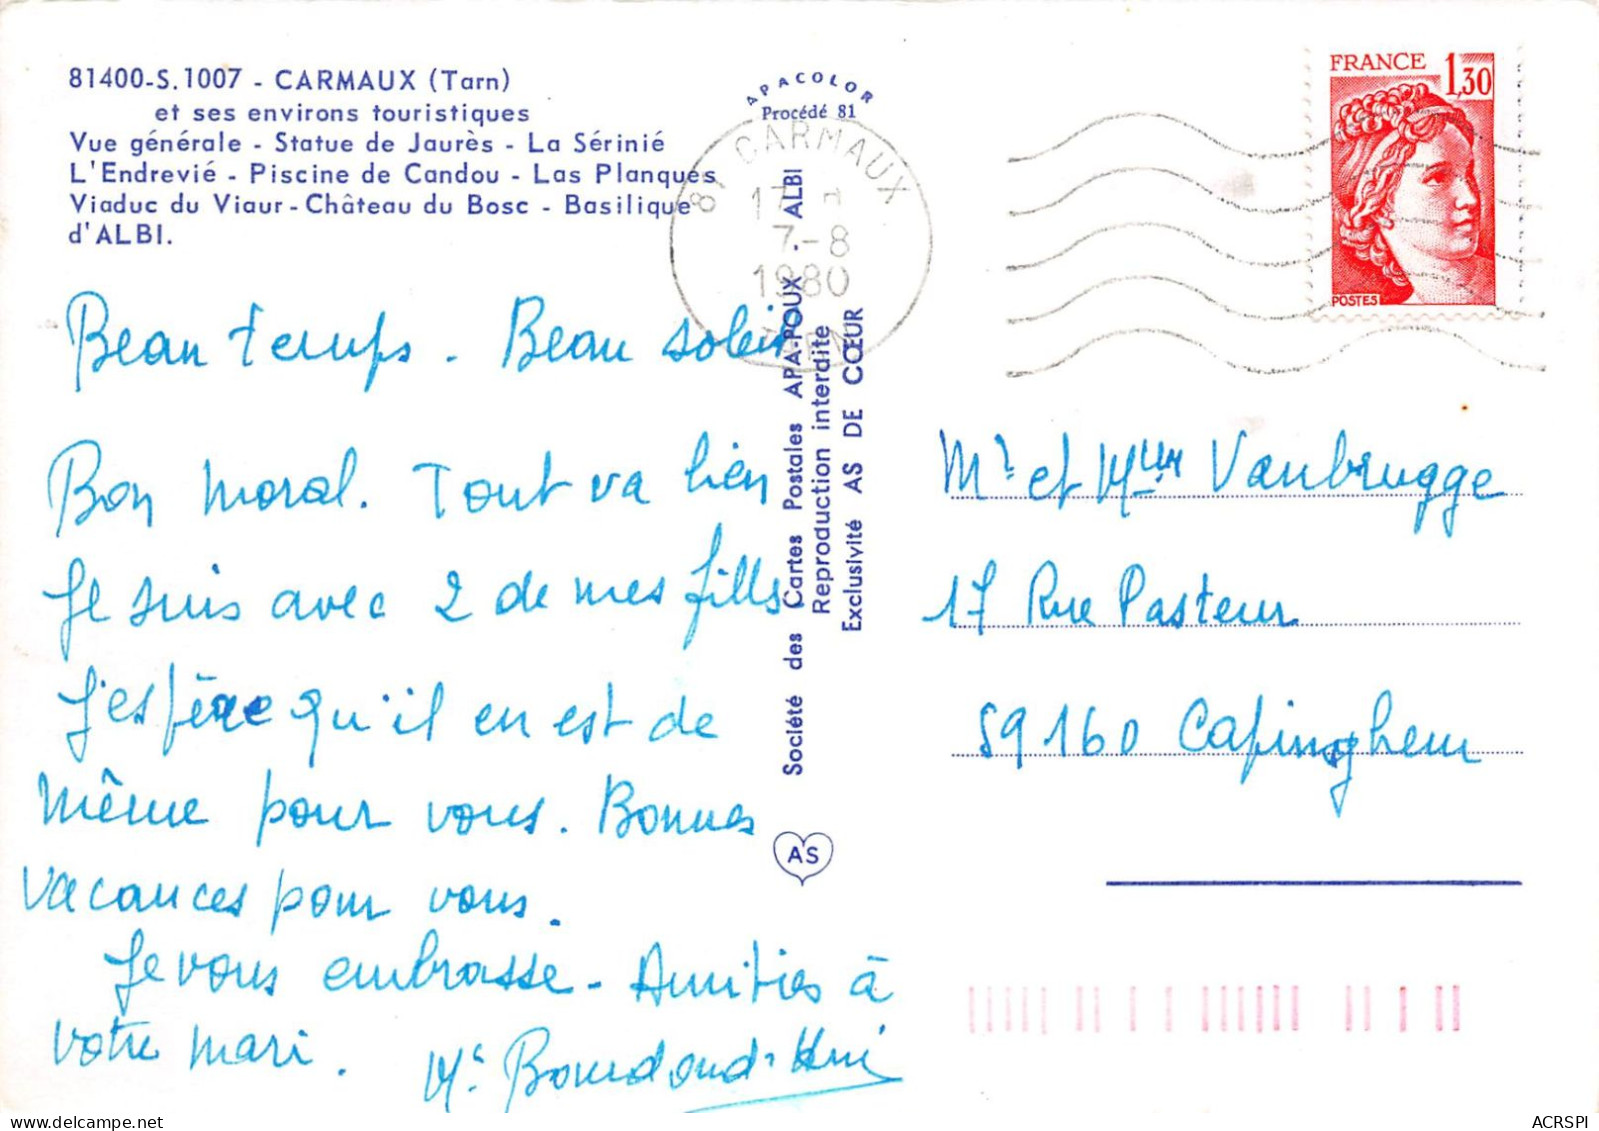 81400-S.1007 - CARMAUX (Tarn)
et ses environs touristiques
Vue générale - Statue de Jaurès - La Sérinié
L'Endrevié - Piscine de Candou - Las Planques
Viaduc du Viaur - Château du Bosc - Basilique
d'ALBI.
APACOLOR
Procédé 81
81 CARMAUX
17 H
7-8
1980
TARN
FRANCE 1,30
POSTES
Beau temps. Beau soleil
Bon moral. Tout va bien
Je suis avec 2 de mes filles
J'espère qu'il en est de
même pour vous. Bonnes
vacances pour vous.
Je vous embrasse - Amitiés à
votre mari.
Société des Cartes Postales APA-POUX - ALBI
Reproduction interdite
Exclusivité AS DE CŒUR
AS
Mr et Mme Vanbrugge
17 Rue Pasteur
59160 Capinghem
ACRSPI